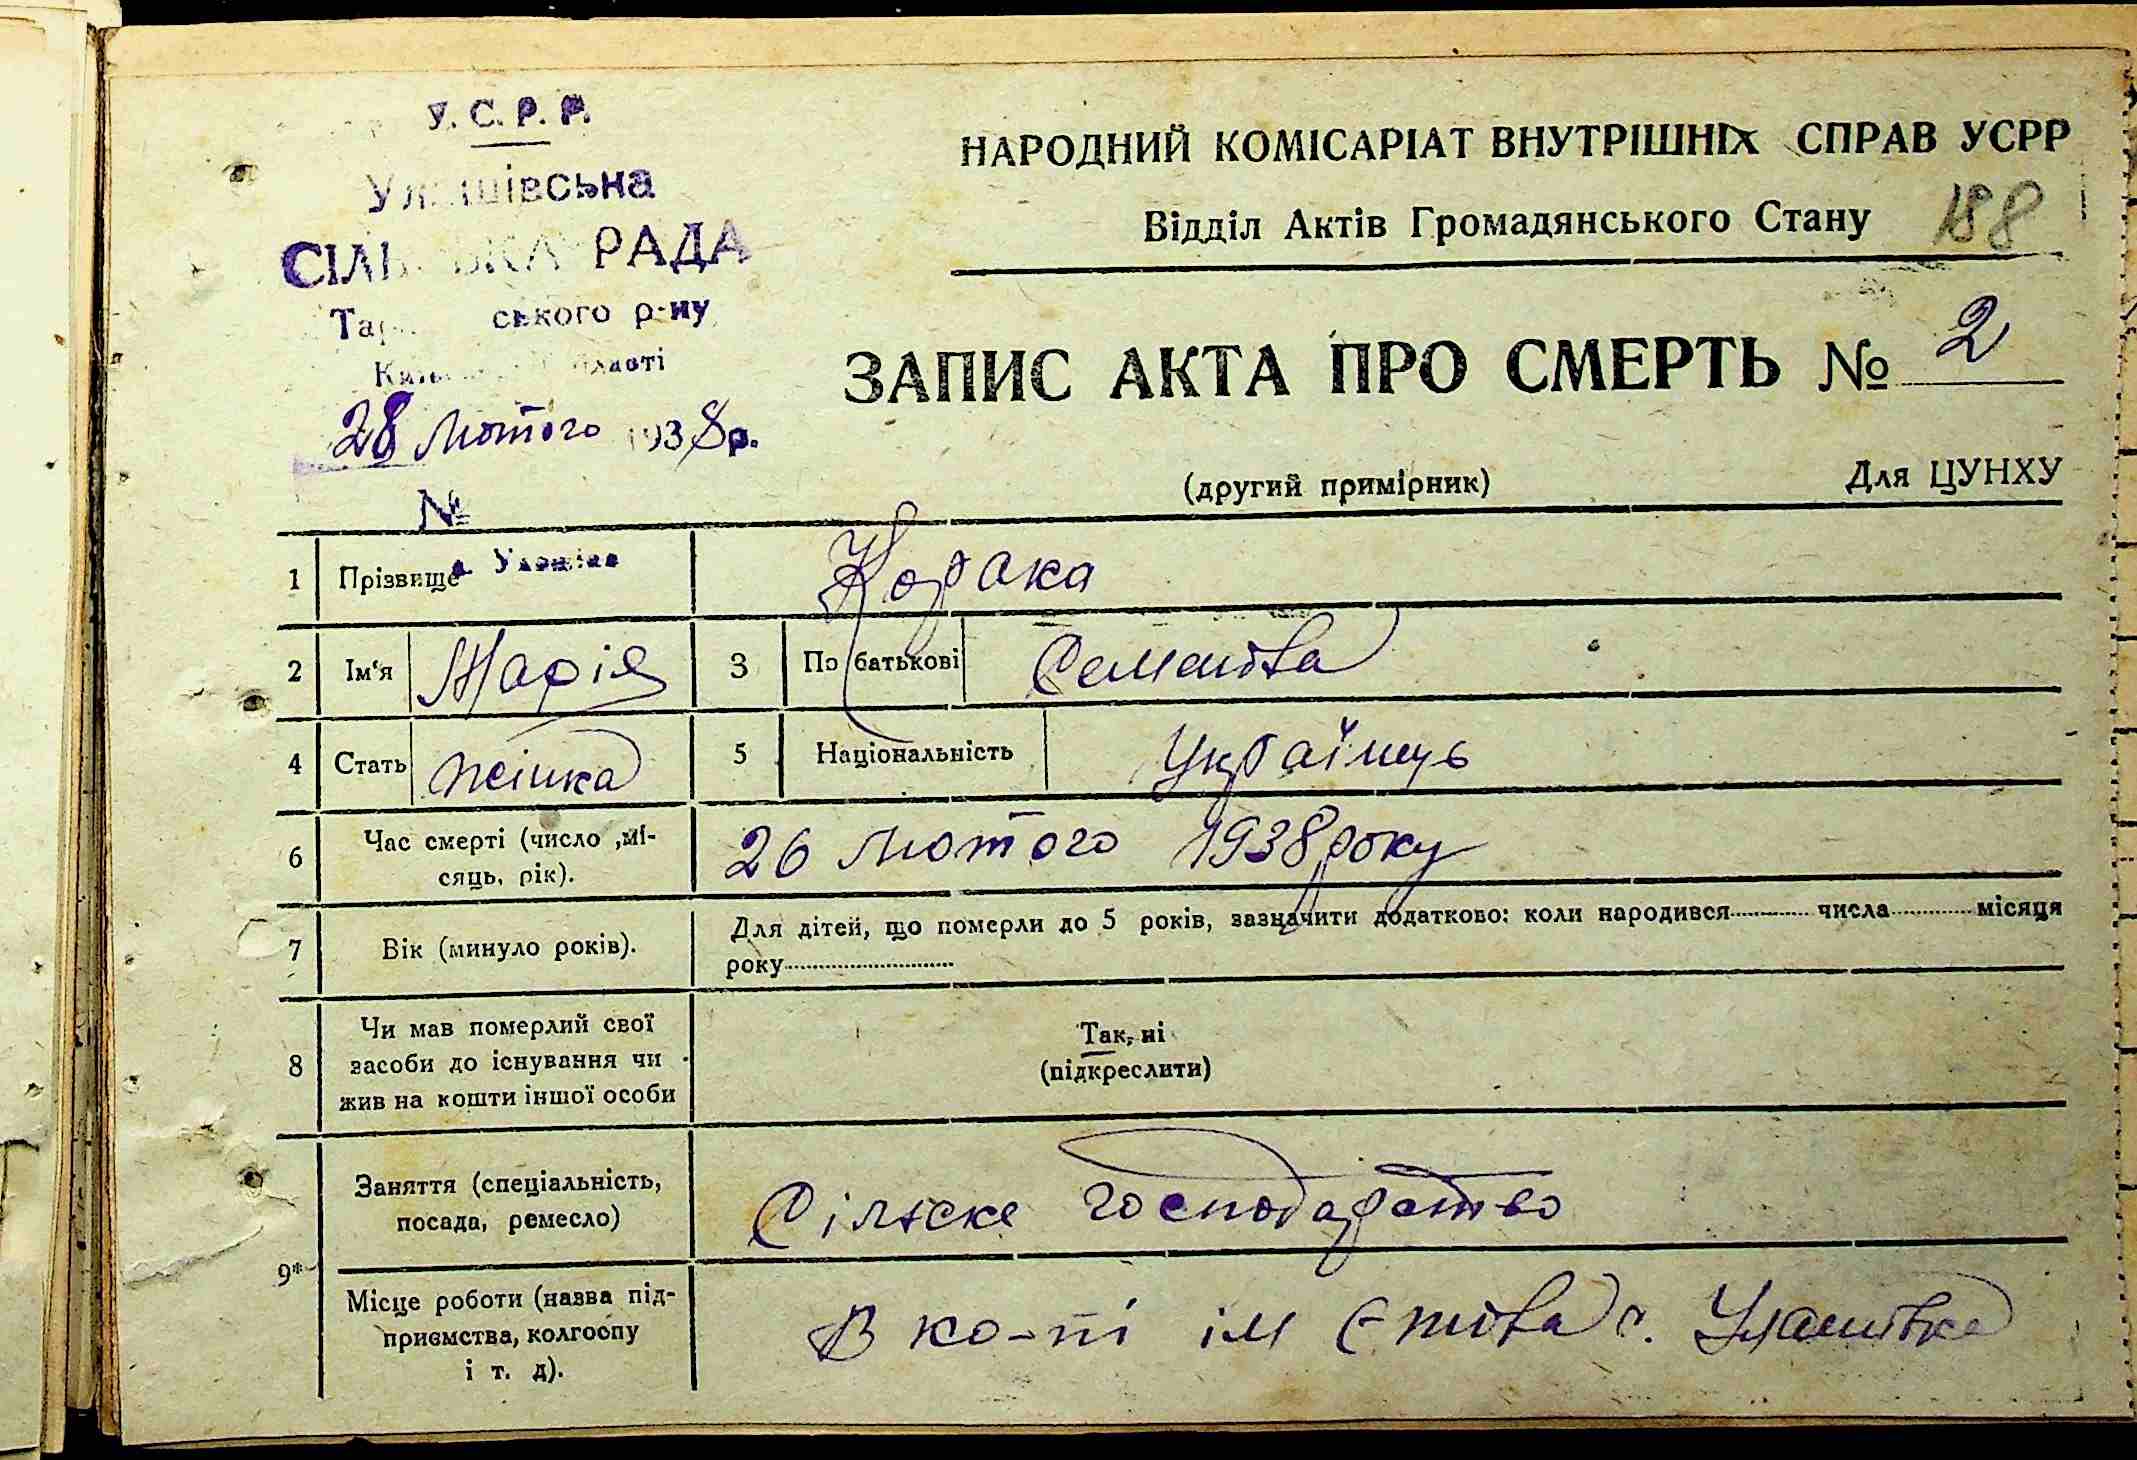 У. С. Р. Р.
РАДА
ського р-ну
28 Лютого 1938 р.
№
НАРОДНИЙ КОМІСАРІАТ ВНУТРІШНІХ СПРАВ УСРР
Відділ Актів Громадянського Стану 188
ЗАПИС АКТА ПРО СМЕРТЬ № 2
(другий примірник) Для ЦУНХУ
1 Прізвище Корака
2 Ім'я Марія 3 По батькові
4 Стать жінка 5 Національність Українць
6 Час смерті (число ,мі-
сяць, рік). 26 Лютого 1938 року
7 Вік (минуло років). Для дітей, що померли до 5 років, зазначити додатково: коли народився числа місяця
року
8 Чи мав померлий свої
засоби до існування чи
жив на кошти іншої особи
Так, ні
(підкреслити)
9* Заняття (спеціальність,
посада, ремесло) Сільське господарство
Місце роботи (назва під-
приємства, колгоспу
і т. д).
В ко-пі ім с. Улашівка